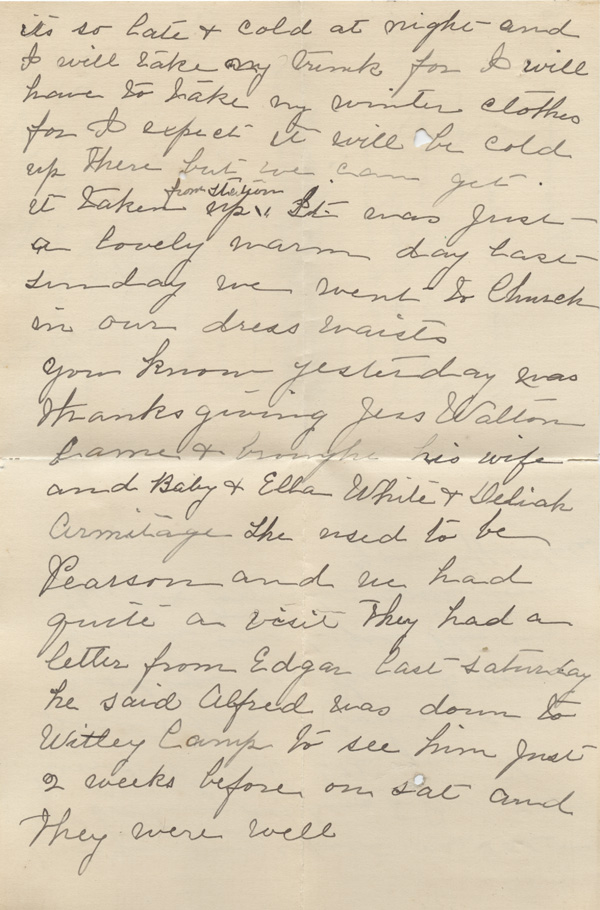 its so late & cold at night and
I will take my trunk for I will
have to take my winter clothes
for I expect it will be cold
up there but we can get
from station
it taken up. It was just
a lovely warm day last
sunday we went to Church
in our dress waists
you know yesterday was
thanksgiving Jess Walton
Came & brought his wife
and Baby & Ella White & Deliah
Armitage she used to be
Pearson and we had
quite a visit They had a
letter from Edgar last saturday
he said Alfred was down to
Witley Camp to see him just
2 weeks before on sat and
They were well